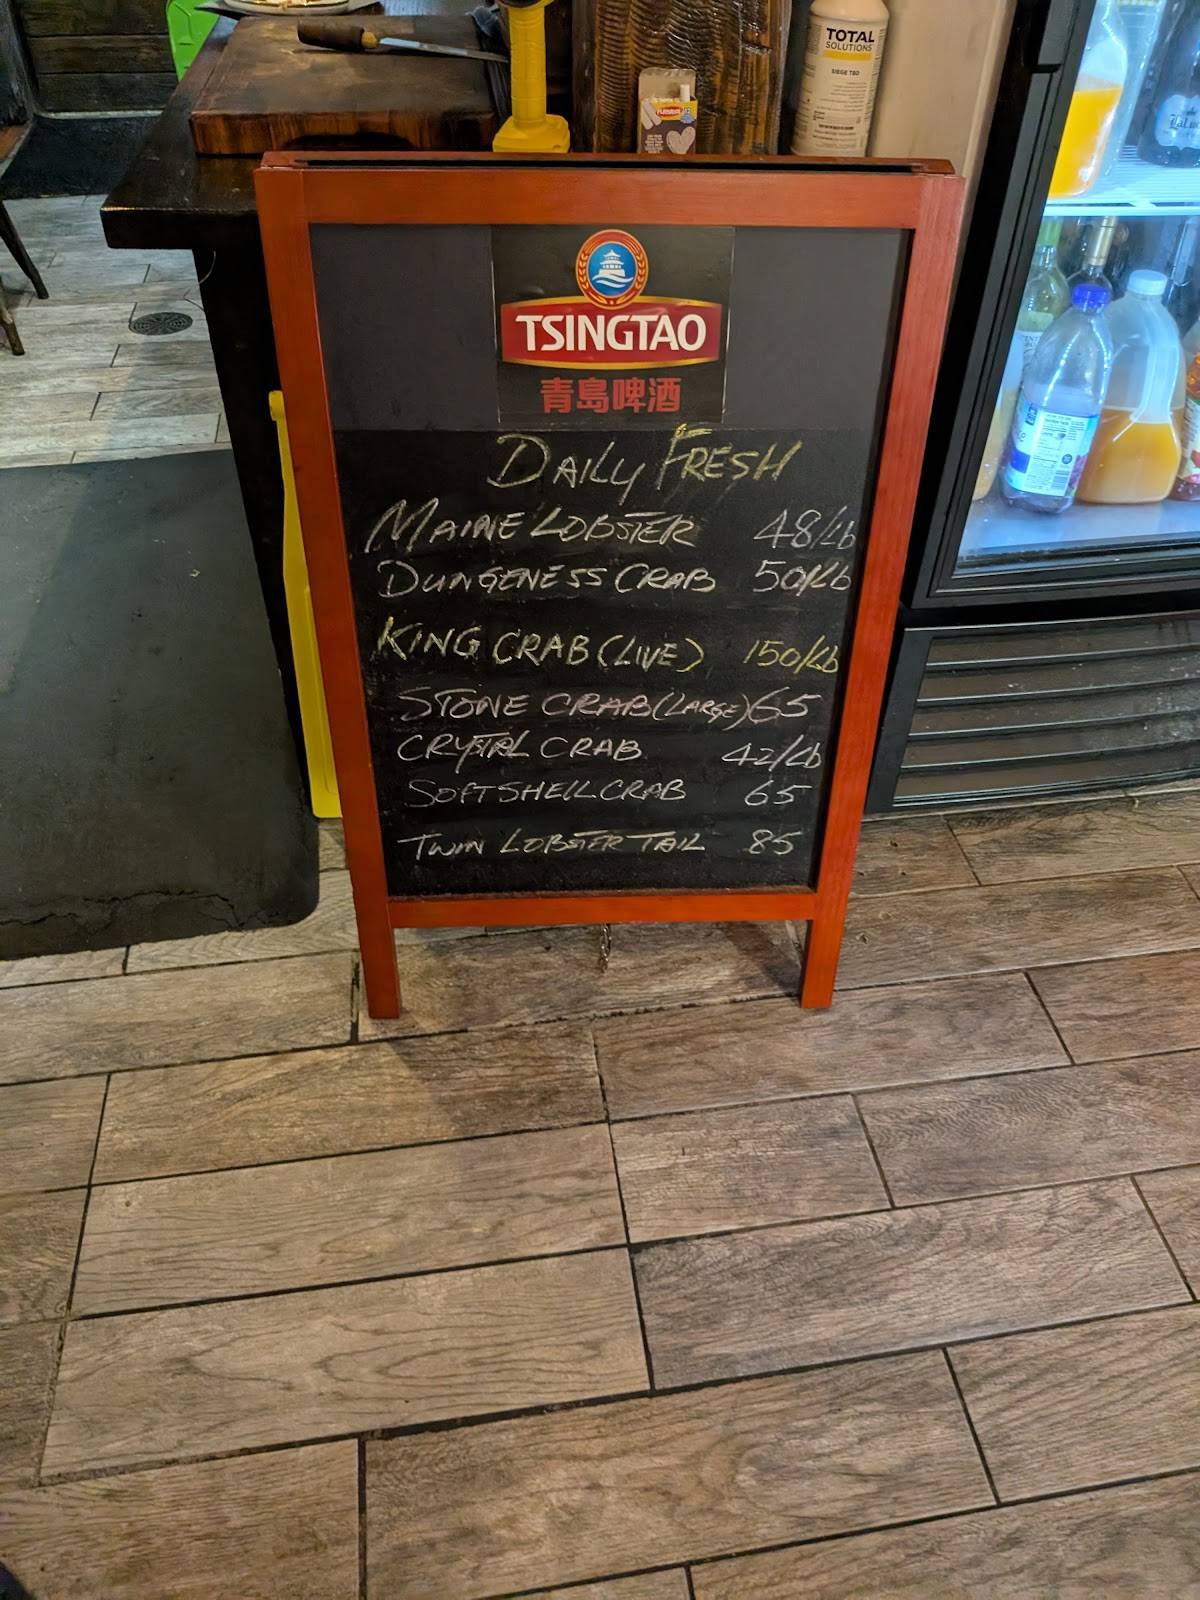 TOTAL
SOLUTIONS
TSINGTAO
青島啤酒
DAILY FRESH
MAINE LOBSTER 48/Lb
DUNGENESS CRAB 50/Lb
KING CRAB (LIVE) 150/Lb
STONE CRAB (LARGE) 65
CRYSTAL CRAB 42/Lb
SOFT SHELL CRAB 65
TWIN LOBSTER TAIL 85